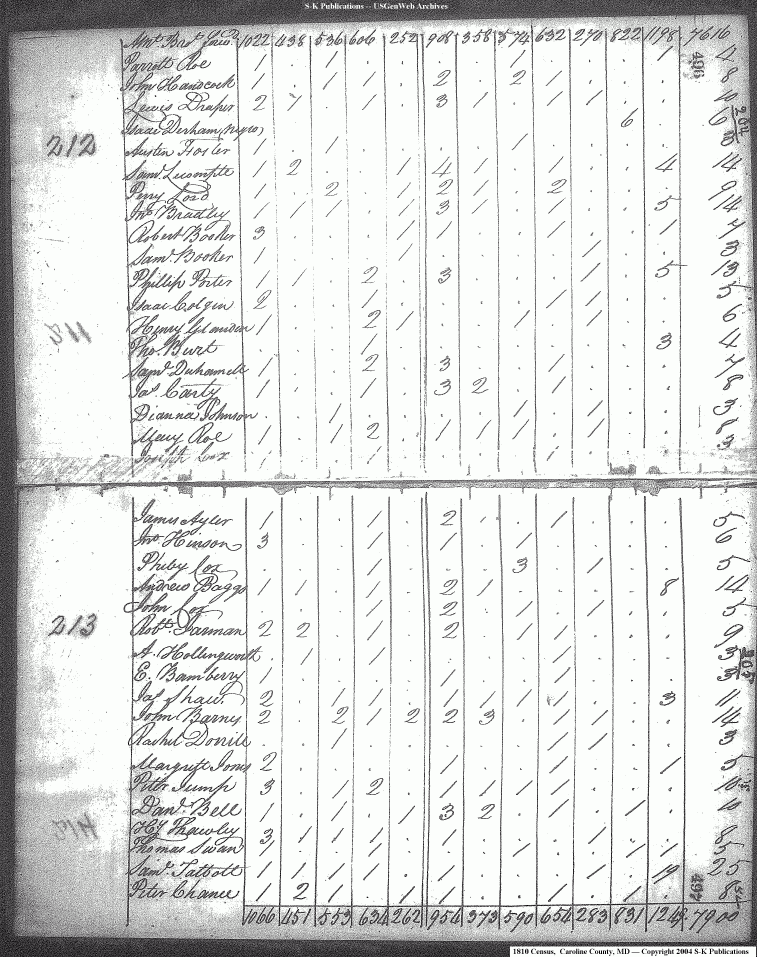 S-K Publications -- USGenWeb Archives
Amt Brot forwd 1022 438 536 606 252 908 358 574 632 270 822 1198 7616
Parrott Roe 1 . . 1 . . . . 1 . . . 1
John Handcock 1 . 1 1 . 2 . 2 1 . . . 8
Lewis Draper 2 7 . 1 . 3 1 . 1 1 . .
Isaac Derham (negro) 6 6
212
Austin Foster 1 . 1 . . . . 1 . . . . 3
Saml Lecompte 1 2 . . 1 4 1 . 1 . . 4 14
Perry Lord 1 . 2 . 1 2 1 . 2 . . . 9
Jno Bradley 1 1 1 . 1 3 1 . 1 . . 5 14
Robert Booker 3 . . . 1 1 . . 1 . . 1 7
Saml Booker 1 . . . 1 . . . . 1 . . 3
Phillip Porter 1 1 . 2 . 3 . . . 1 . 5 13
Isaac Colgin 2 . . 1 . . . . 1 1 . . 5
Henry Glanden 1 . . 2 1 . . 1 . 1 . . 6
Tho. Burt . . . 1 . . . . . . . 3 4
Saml Duhamell 1 . . 2 . 3 . . 1 . . . 7
Jas Carty 1 . . 1 . 3 2 . 1 . . . 8
Dianna Johnson . . 1 . . . . 1 . 1 . . 3
Mary Roe 1 . 1 2 . 1 1 1 . 1 . . 8
Joseph Cox
James Ayler 1 . . 1 . 2 . . 1 . . . 5
Jno Hinson 3 . . 1 . 1 . 1 . . . . 6
Phiby Cox . . . 1 . . . 3 . 1 . . 5
Andrew Baggs 1 1 . 1 . 2 1 . . . . 8 14
John Cox . . . 1 . 2 . 1 1 . . . 5
213
Robt Jarman 2 2 . 1 . 2 . . 1 1 . . 9
A. Hollingworth . 1 . 1 . . . . 1 . . . 3
E. Bamberry 1 . . . . 1 . . 1 . . . 3
Jas Shaw 2 . 1 1 . 1 1 1 1 . . 3 11
John Barny 2 . 2 1 2 2 3 1 . 1 . . 14
Rachel Dorrill . . 1 . . . . . 1 1 . . 3
Margrett Jones 2 . . . . 1 . . 1 . . 1 5
Peter Jump 3 . 1 2 . 1 1 1 1 . . . 10
Danl Bell 1 . 1 . 1 3 2 . 1 . 1 . 10
Hy Thawley 3 1 1 1 1 1 . . . . . . 8
Thomas Swan
Saml Talbott 1 1 . 1 . 1 . . 1 1 . 19 25
Peter Chance 1 2 1 . 1 1 . . 1 . 1 . 8
1066 451 553 634 262 954 373 590 654 283 831 1249 7900
496
497
1810 Census, Caroline County, MD — Copyright 2004 S-K Publications